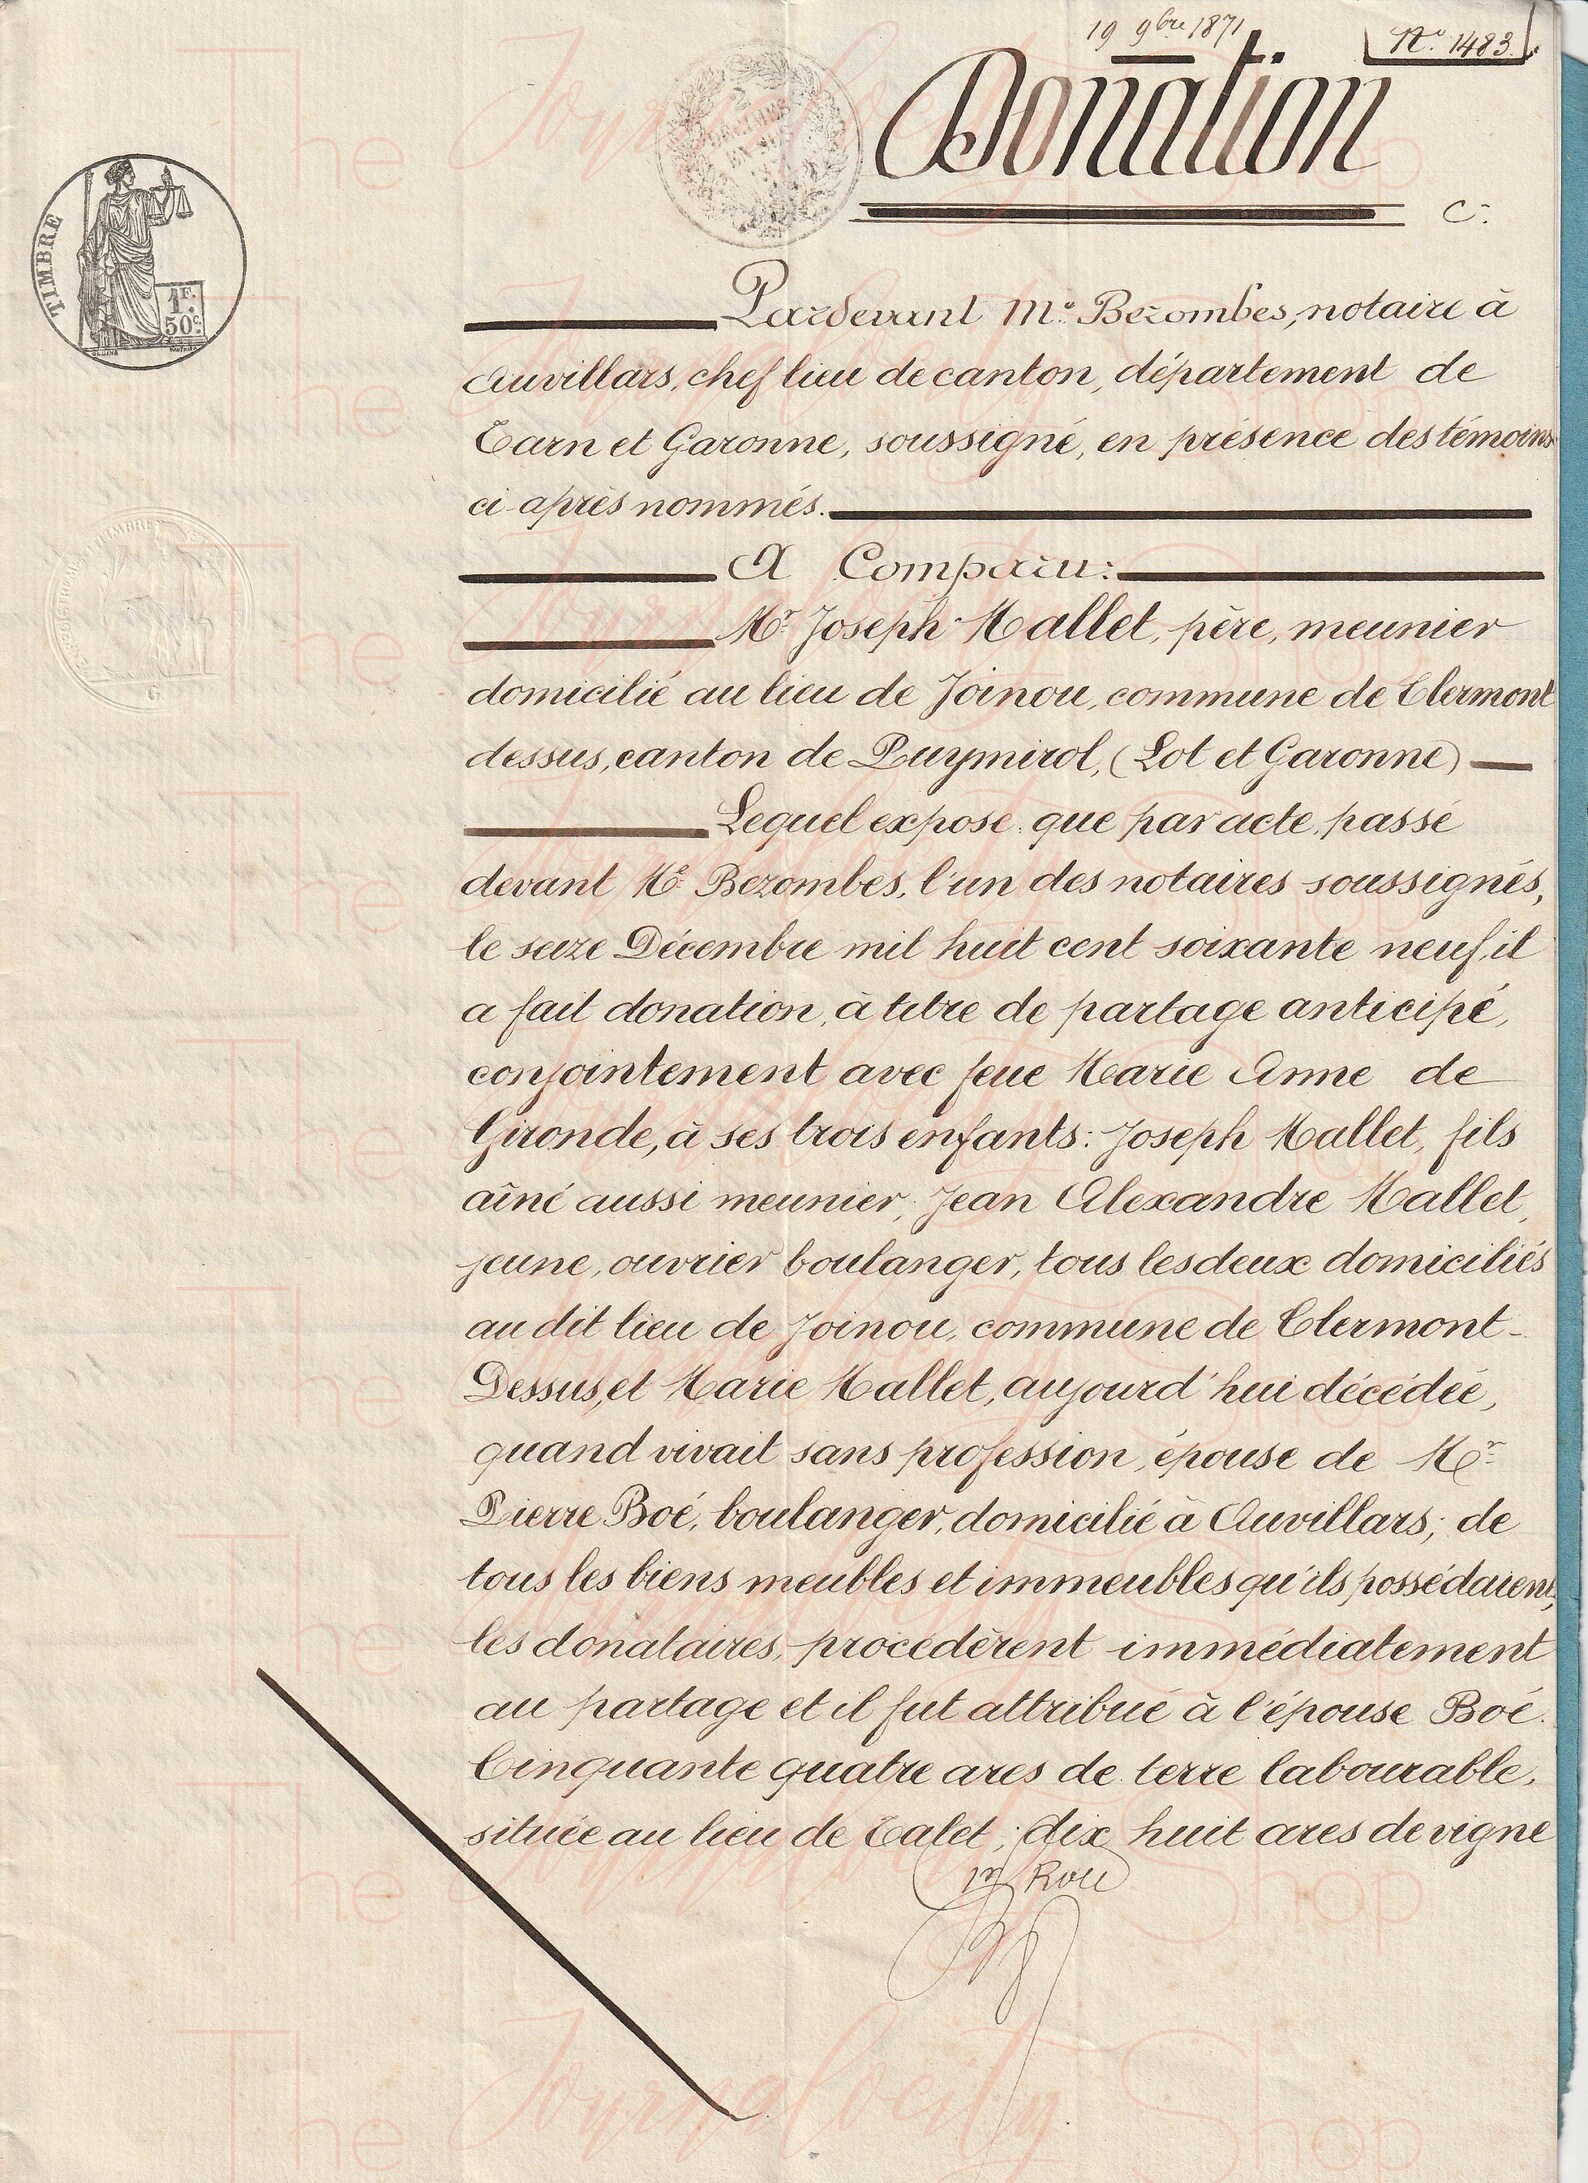 19 9bre 1871
No. 1483.
Donation
C.
TIMBRE
1F.
50c.
2 DÉCIMES
EN SUS
Pardevant Me. Bezombes, notaire à
Auvillars, chef lieu de canton, département de
Tarn et Garonne, soussigné, en présence des témoins
ci-après nommés.
A Comparu:
Mr. Joseph Mallet, père, meunier
domicilié au lieu de Joinou, commune de Clermont
dessus, canton de Puymirol, (Lot et Garonne)
Lequel expose que par acte, passé
devant Me. Bezombes, l'un des notaires soussignés,
le seize Décembre mil huit cent soixante neuf, il
a fait donation, à titre de partage anticipé,
conjointement avec feue Marie Anne de
Gironde, à ses trois enfants: Joseph Mallet, fils
aîné aussi meunier, Jean Alexandre Mallet,
jeune, ouvrier boulanger, tous les deux domiciliés
au dit lieu de Joinou, commune de Clermont-
Dessus, et Marie Mallet, aujourd'hui décédée,
quand vivait sans profession, épouse de Mr.
Pierre Boé, boulanger, domicilié à Auvillars; de
tous les biens meubles et immeubles qu'ils possédaient;
les donataires, procédèrent immédiatement
au partage et il fut attribué à l'épouse Boé.
Cinquante quatre ares de terre labourable,
située au lieu de Talet; dix huit ares de vigne
1er Role
The Journalocity Shop